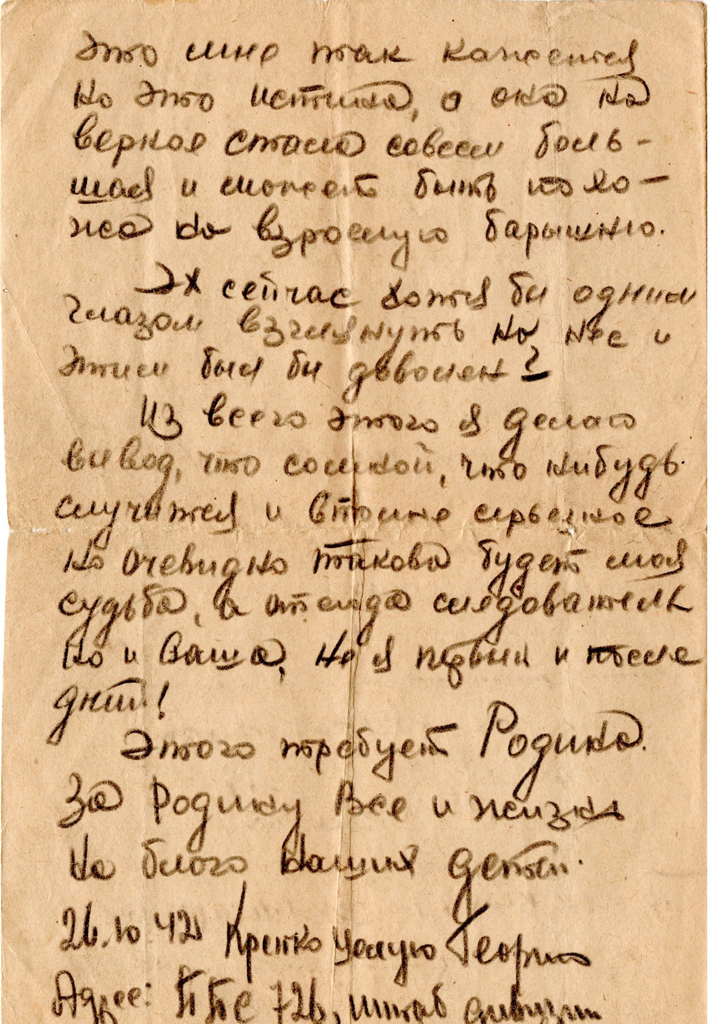 Это мне так кажется
но это истина, а она на
верное стала совсем боль-
шая и может быть похо-
жа на взрослую барышню.
Эх сейчас хотя бы одним
глазом взглянуть на нее и
этим был бы доволен?
Из всего этого я делаю
вывод, что со мной, что нибудь
случится и вполне серьезное
но очевидно такова будет моя
судьба, а отсюда следователь
но и Ваша, не я первый и после
дний!
Этого требует Родина.
За Родину Все и жизнь
на благо наших детей.
26.10.42 Крепко целую Георгий
Адрес: ППС 726, штаб дивизии